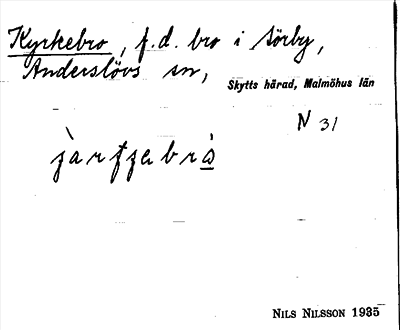 Kyrkebro, f.d. bro i Sörby,
Anderslövs sn,
Skytts härad, Malmöhus län
N 31
NILS NILSSON 1935